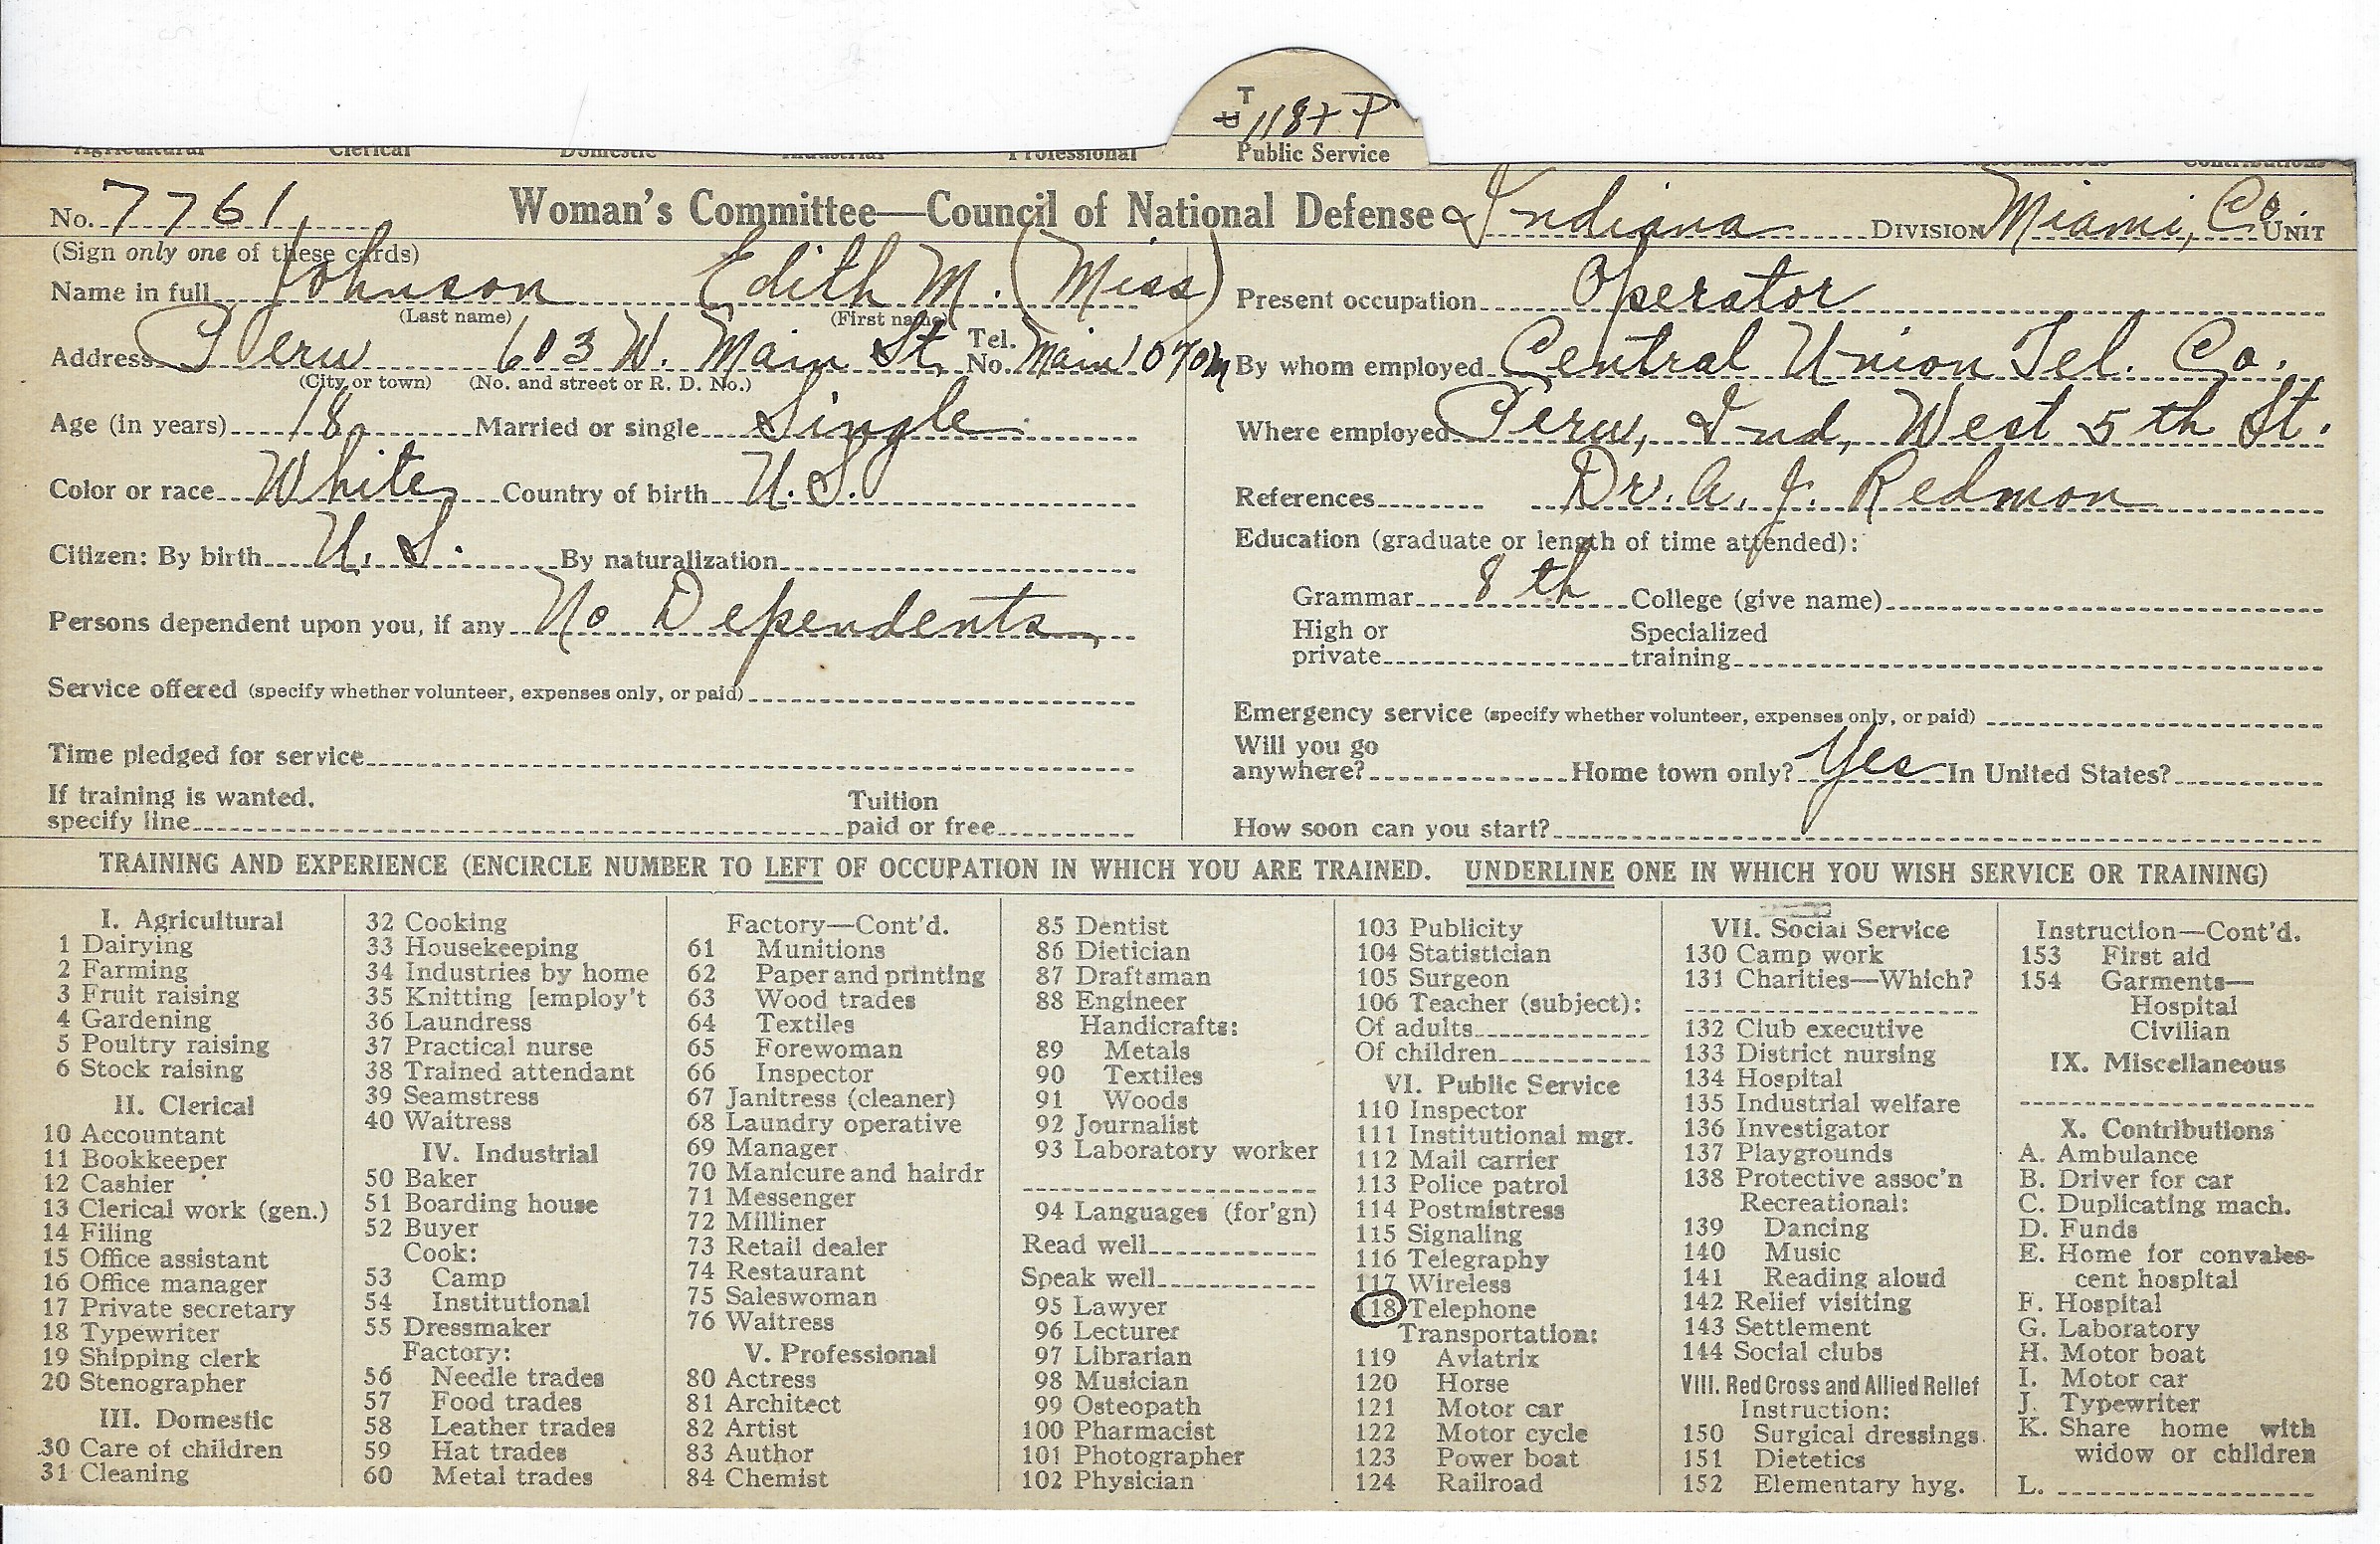 T
U 118+ P
Public Service
No. 7761 Woman's Committee—Council of National Defense Indiana DIVISION Miami, Co. UNIT
(Sign only one of these cards)
Name in full Johnson Edith M. (Miss)
(Last name) (First name)
Address Peru 603 W. Main St, Tel. No. Main 1070M
(City or town) (No. and street or R. D. No.)
Age (in years) 18 Married or single Single
Color or race White Country of birth U.S.
Citizen: By birth U.S. By naturalization
Persons dependent upon you, if any No Dependents,
Service offered (specify whether volunteer, expenses only, or paid)
Time pledged for service
If training is wanted, specify line Tuition paid or free
Present occupation Operator
By whom employed Central Union Tel. Co.
Where employed Peru, Ind, West 5th St.
References Dr. A. J. Redmon
Education (graduate or length of time attended):
Grammar 8th College (give name)
High or private Specialized training
Emergency service (specify whether volunteer, expenses only, or paid)
Will you go anywhere? Home town only? Yes In United States?
How soon can you start?
TRAINING AND EXPERIENCE (ENCIRCLE NUMBER TO LEFT OF OCCUPATION IN WHICH YOU ARE TRAINED. UNDERLINE ONE IN WHICH YOU WISH SERVICE OR TRAINING)
I. Agricultural
1 Dairying
2 Farming
3 Fruit raising
4 Gardening
5 Poultry raising
6 Stock raising
II. Clerical
10 Accountant
11 Bookkeeper
12 Cashier
13 Clerical work (gen.)
14 Filing
15 Office assistant
16 Office manager
17 Private secretary
18 Typewriter
19 Shipping clerk
20 Stenographer
III. Domestic
30 Care of children
31 Cleaning
32 Cooking
33 Housekeeping
34 Industries by home
35 Knitting [employ't
36 Laundress
37 Practical nurse
38 Trained attendant
39 Seamstress
40 Waitress
IV. Industrial
50 Baker
51 Boarding house
52 Buyer
Cook:
53 Camp
54 Institutional
55 Dressmaker
Factory:
56 Needle trades
57 Food trades
58 Leather trades
59 Hat trades
60 Metal trades
Factory—Cont'd.
61 Munitions
62 Paper and printing
63 Wood trades
64 Textiles
65 Forewoman
66 Inspector
67 Janitress (cleaner)
68 Laundry operative
69 Manager
70 Manicure and hairdr
71 Messenger
72 Milliner
73 Retail dealer
74 Restaurant
75 Saleswoman
76 Waitress
V. Professional
80 Actress
81 Architect
82 Artist
83 Author
84 Chemist
85 Dentist
86 Dietician
87 Draftsman
88 Engineer
Handicrafts:
89 Metals
90 Textiles
91 Woods
92 Journalist
93 Laboratory worker
94 Languages (for'gn)
Read well
Speak well
95 Lawyer
96 Lecturer
97 Librarian
98 Musician
99 Osteopath
100 Pharmacist
101 Photographer
102 Physician
103 Publicity
104 Statistician
105 Surgeon
106 Teacher (subject):
Of adults
Of children
VI. Public Service
110 Inspector
111 Institutional mgr.
112 Mail carrier
113 Police patrol
114 Postmistress
115 Signaling
116 Telegraphy
117 Wireless
118 Telephone
Transportation:
119 Aviatrix
120 Horse
121 Motor car
122 Motor cycle
123 Power boat
124 Railroad
VII. Social Service
130 Camp work
131 Charities—Which?
132 Club executive
133 District nursing
134 Hospital
135 Industrial welfare
136 Investigator
137 Playgrounds
138 Protective assoc'n
Recreational:
139 Dancing
140 Music
141 Reading aloud
142 Relief visiting
143 Settlement
144 Social clubs
VIII. Red Cross and Allied Relief
Instruction:
150 Surgical dressings
151 Dietetics
152 Elementary hyg.
Instruction—Cont'd.
153 First aid
154 Garments—
Hospital
Civilian
IX. Miscellaneous
X. Contributions
A. Ambulance
B. Driver for car
C. Duplicating mach.
D. Funds
E. Home for convales-
cent hospital
F. Hospital
G. Laboratory
H. Motor boat
I. Motor car
J. Typewriter
K. Share home with
widow or children
L.